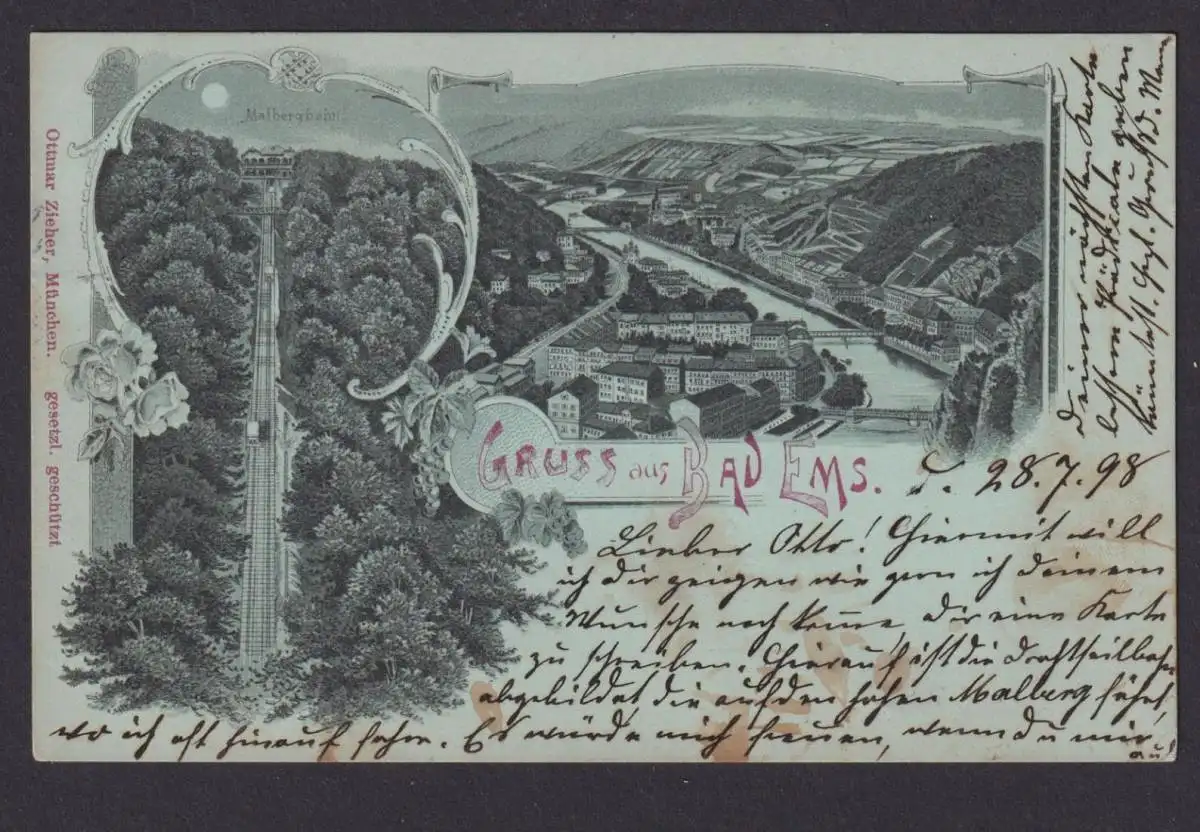 Malbergbahn
Ottmar Zieher, München. gesetzl. geschützt
GRUSS aus BAD EMS.
d. 28.7.98
Lieber Otto! Hiermit will
ich Dir zeigen wie gern ich deinem
Wunsche nach komme, Dir eine Karte
zu schreiben. Hierauf ist die Drahtseilbahn
abgebildet die auf den hohen Malberg fährt,
wo ich oft hinauf fahre. Es würde mich freuen, wenn du mir
auf
deiner nächsten Karte